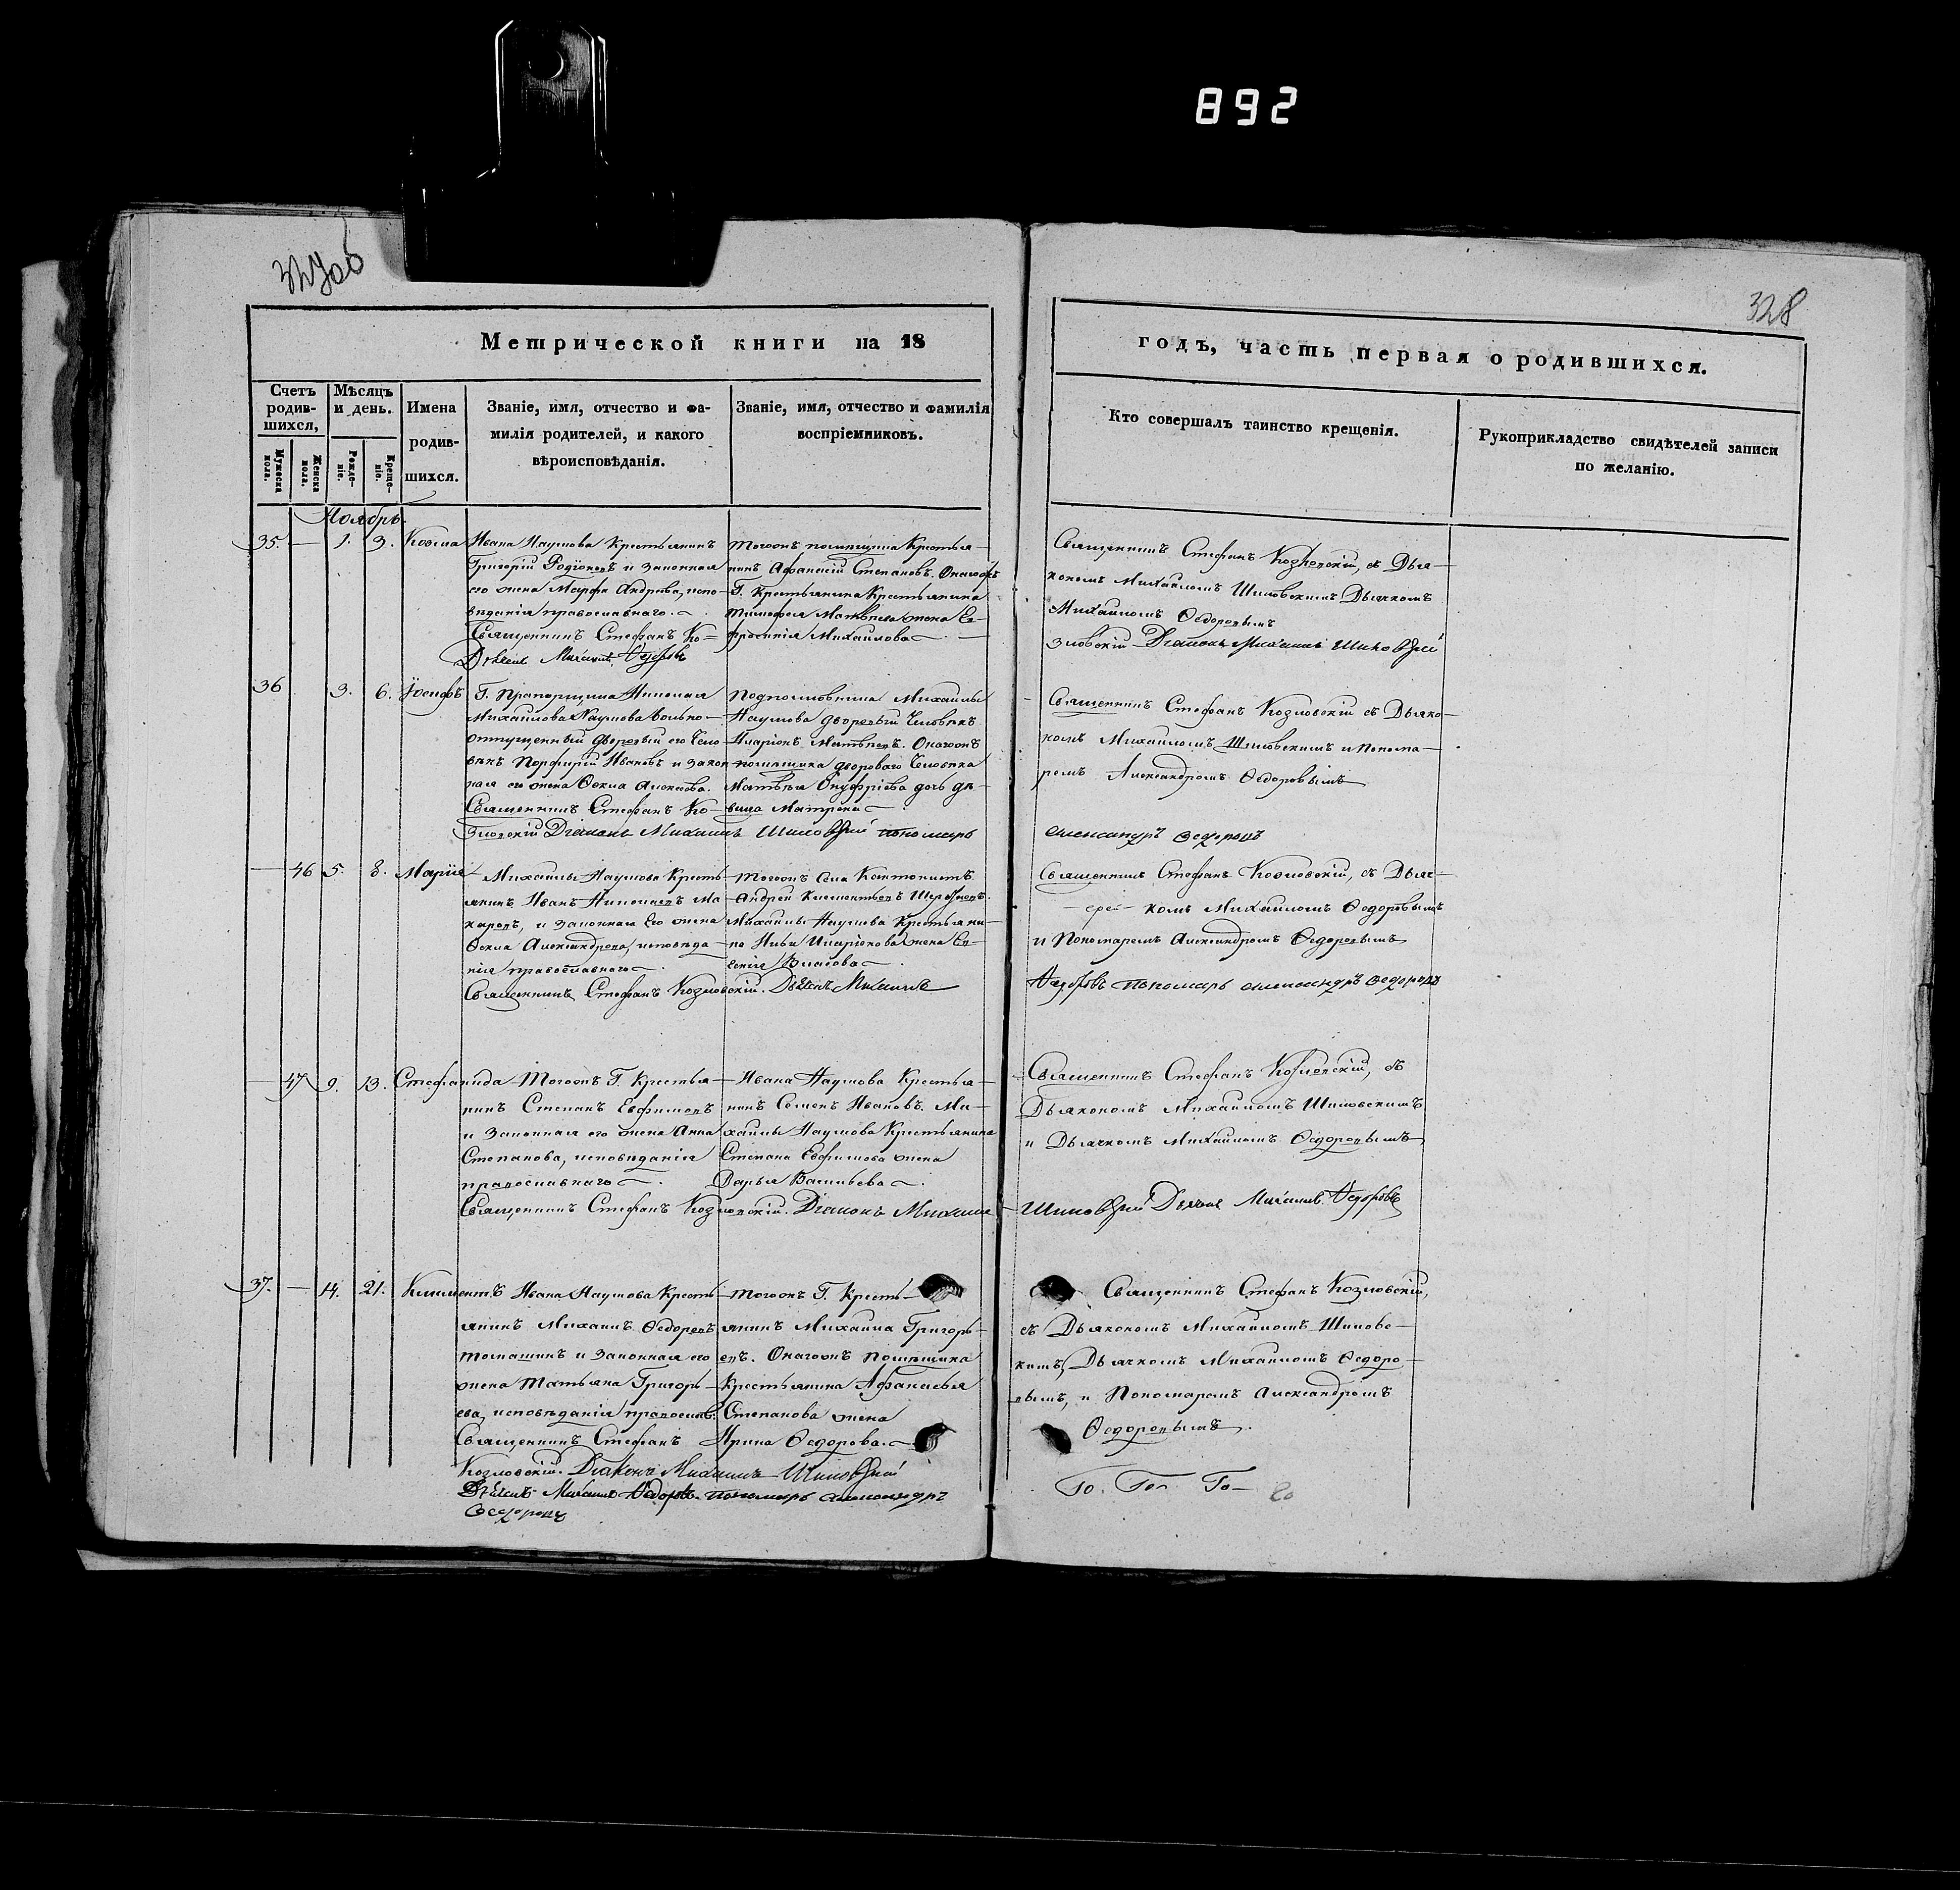 892
327об
328
Метрической книги на 18
годъ, часть первая о родившихся.
Счетъ родив-шихся,
Мужеска пола.
Женска пола.
Мѣсяцъ и день.
Рожде-ніе.
Креще-ніе.
Имена родив-шихся.
Званіе, имя, отчество и фа-
милія родителей, и какого
вѣроисповѣданія.
Званіе, имя, отчество и фамилія
воспріемниковъ.
Кто совершалъ таинство крещенія.
Рукоприкладство свидѣтелей записи
по желанію.
Ноябрь
35. — 1. 3. Козма
Ивана Наумова Крестьянинъ
Григорій Родіоновъ и законная
его жена Марфа Андреева, испо-
вѣданія православнаго.
Священникъ Стефанъ Ко=
Дьячекъ Михаилъ Федоровъ
Тогожъ помѣщика Крестья-
нинъ Афанасій Степановъ. Онагожъ
Г. Крестьянина Крестьянина
Тимофея Матвѣева жена Ев-
фросинія Михайлова
Священникъ Стефанъ Козловскій, съ Дья-
кономъ Михаиломъ Шиловскимъ Дьячкомъ
Михаиломъ Ѳедоровымъ
зловскій Діаконъ Михаилъ Шиловскій
36 3. 6. Іосифъ
Г. Прапорщика Николая
Михайлова Наумова вольно-
отпущенный дворовый его Чело-
вѣкъ Порфирій Ивановъ и закон
ная его жена Ѳекла Алексѣева.
Священникъ Стефанъ Ко-
зловскій Діаконъ Михаилъ Шиловскій пономарь
Подполковника Михаилы
Наумова дворовый Человѣкъ
Иларіонъ Матвѣевъ. Онагожъ
помѣщика двороваго Человѣка
Матвѣя Онуфріева дочь дѣ-
вица Матрена
Священникъ Стефанъ Козловскій съ Дьяко-
номъ Михаиломъ Шиловскимъ и Понома-
ремъ Александромъ Ѳедоровымъ
александръ Ѳедоровъ
— 46 5. 8. Марія
Михаилы Наумова Кресть-
янинъ Иванъ Николаевъ Ма-
каровъ, и законная его жена
Ѳекла Александрова, исповѣда-
нія православнаго
Священникъ Стефанъ Козловскій. Дьячекъ Михаилъ
Тогожъ Села Кантонистъ
Андрей Климентьевъ
Михаилы Наумова Крестьяни-
на Ильи Иларіонова жена Ев-
Власова
Священникъ Стефанъ Козловскій, съ Дьяч-
комъ Михаиломъ Ѳедоровымъ
и Пономаремъ Александромъ Ѳедоровымъ
Федоровъ пономарь александръ Ѳедоровъ
— 47 9. 13. Стефанида
Тогожъ Г. Крестья-
нинъ Степанъ Евфимовъ
и Законная его жена Анна
Степанова, исповѣданія
православнаго
Священникъ Стефанъ Козловскій. Діаконъ Михаилъ
Ивана Наумова Крестья-
нинъ Семенъ Ивановъ. Ми-
хаилы Наумова Крестьянина
Степана Евфимова жена
Дарья Васильева
Священникъ Стефанъ Козловскій, съ
Дьякономъ Михаиломъ Шиловскимъ
и Дьячкомъ Михаиломъ Ѳедоровымъ
Шиловскій Дьячекъ Михаилъ Федоровъ
37. — 14. 21. Климентъ
Ивана Наумова Кресть-
янинъ Михаилъ Ѳедоровъ
и Законная его
жена Татьяна Григорь-
ева, исповѣданія православ.
Священникъ Стефанъ
Козловскій. Діаконъ Михаилъ Шиловскій
Дьячекъ Михаилъ Федоровъ. пономарь александръ
Ѳедоровъ
Тогожъ Г. Кресть-
янинъ Михаила Григорь-
евъ. Онагожъ помѣщика
Крестьянина Афанасья
Степанова жена
Ирина Ѳедорова.
Священникъ Стефанъ Козловскій,
съ Дьякономъ Михаиломъ Шиловс-
кимъ, Дьячкомъ Михаиломъ Ѳедоро-
вымъ, и Пономаремъ Александромъ
Ѳедоровымъ.